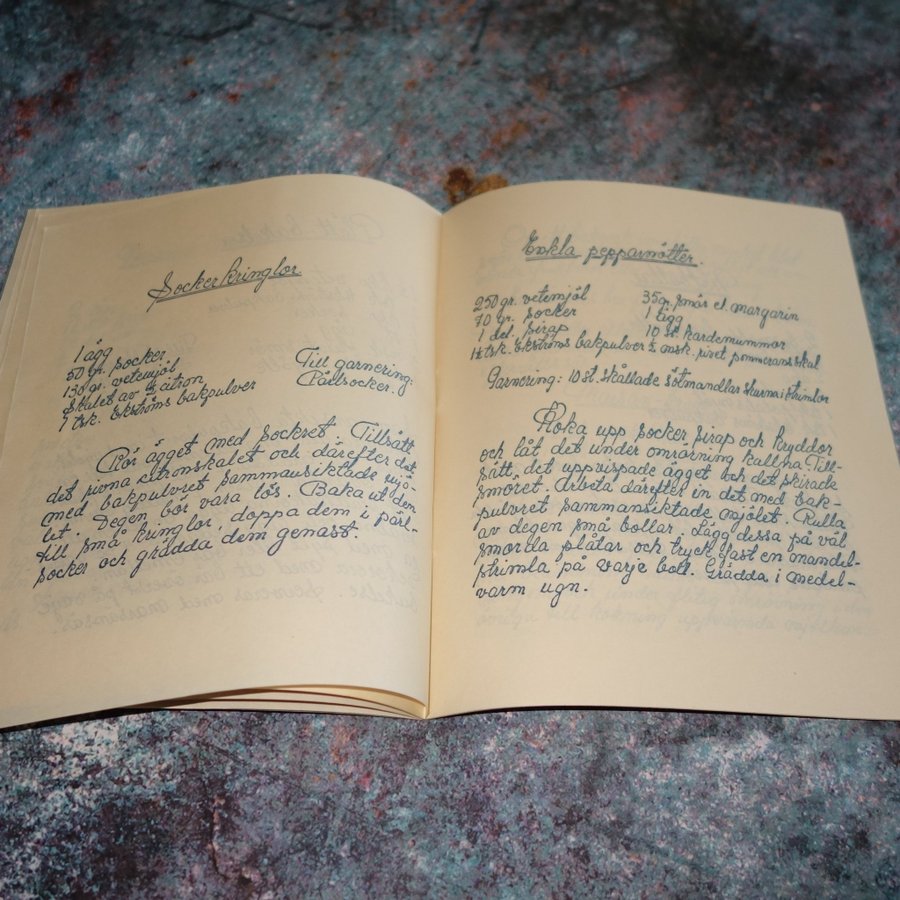 Sockerkringlor.
1 ägg
50 gr. socker
130 gr. vetemjöl
Skalet av ½ citron
1 tsk. Ekströms bakpulver
Till garnering:
Pärlsocker.
Rör ägget med sockret. Tillsätt
det rivna citronskalet och därefter det
med bakpulvret sammansiktade mjö-
let. Degen bör vara lös. Baka ut den
till små kringlor, doppa dem i pärl-
socker och grädda dem genast.
Enkla pepparnötter.
250 gr. vetemjöl
70 gr. socker
1 del. sirap
1½ tsk. Ekströms bakpulver
35 gr. smör el. margarin
1 ägg
10 st. kardemummor
½ msk. rivet pommeransskal
Garnering: 10 st. skållade sötmandlar skurna i strimlor
Koka upp socker, sirap och kryddor
och låt det under omrörning kallna. Till-
sätt det uppvispade ägget och det skirade
smöret. Arbeta därefter in det med bak-
pulvret sammansiktade mjölet. Rulla
av degen små bollar. Lägg dessa på väl
smorda plåtar och tryck fast en mandel-
strimla på varje boll. Grädda i medel-
varm ugn.